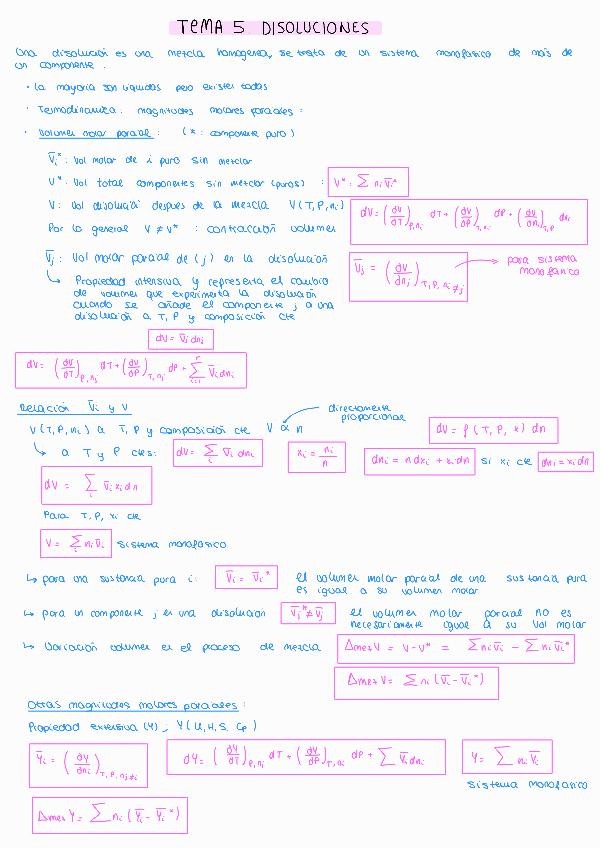 TEMA 5 DISOLUCIONES
Una disolución es una mezcla homogénea, se trata de un sistema monofásico de más de
un componente.
· La mayoría son líquidas pero existen todas
· Termodinámica: magnitudes molares parciales:
· Volumen molar parcial: (*: componente puro)
V̅i*: Vol molar de i puro sin mezclar
V*: Vol total componentes sin mezclar (puros): V* = Σ ni V̅i*
V: Vol disolución después de la mezcla V(T, P, ni) dV = (∂V/∂T)P,ni dT + (∂V/∂P)T,ni dP + (∂V/∂ni)T,P dni
Por lo general V ≠ V* : contracción volumen
V̅j: Vol molar parcial de (j) en la disolución V̅j = (∂V/∂nj)T, P, ni≠j → para sistema
monofásico
↳ Propiedad intensiva y representa el cambio
de volumen que experimenta la disolución
cuando se añade el componente j a una
disolución a T, P y composición cte
dV = V̅i dni
dV = (∂V/∂T)P,ni dT + (∂V/∂P)T,ni dP + Σ V̅i dni
Relación V̅i y V
directamente
proporcional
V(T, P, ni) a T, P y composición cte V ∝ n dV = f(T, P, x) dn
↳ a T y P ctes: dV = Σi V̅i dni xi = ni/n dni = n dxi + xi dn si xi cte dni = xi dn
dV = Σi V̅i xi dn
Para T, P, xi cte
V = Σi ni V̅i sistema monofásico
↳ para una sustancia pura i: V̅i = V̅i* el volumen molar parcial de una sustancia pura
es igual a su volumen molar
↳ para un componente j en una disolución V̅j* ≠ V̅j el volumen molar parcial no es
necesariamente igual a su vol molar
↳ Variación volumen en el proceso de mezcla Δmez V = V - V* = Σ ni V̅i - Σ ni V̅i*
Δmez V = Σ ni (V̅i - V̅i*)
Otras magnitudes molares parciales:
Propiedad extensiva (Y), Y (U, H, S, Cp)
Y̅i = (∂Y/∂ni)T, P, nj≠i dY = (∂Y/∂T)P,ni dT + (∂Y/∂P)T,ni dP + Σ Y̅i dni Y = Σ ni Y̅i
sistema monofásico
Δmez Y = Σ ni (Y̅i - Y̅i*)